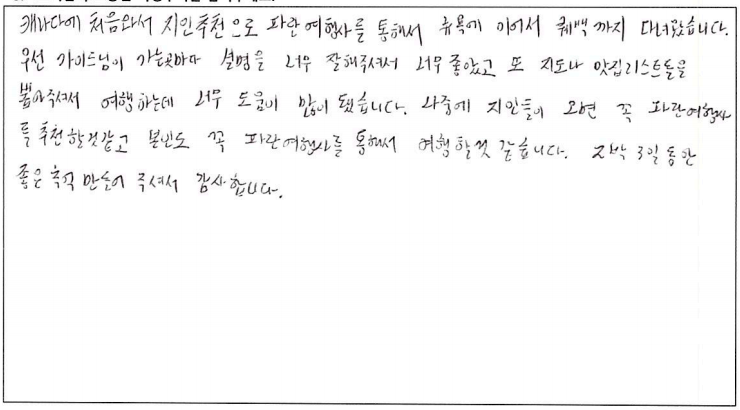 캐나다에 처음와서 지인추천으로 파란여행사를 통해서 뉴욕에 이어서 퀘백까지 다녀왔습니다.
우선 가이드님이 가는곳마다 설명을 너무 잘해주셔서 너무좋았고 또 지도나 맛집리스트들을
뽑아주셔서 여행하는데 너무 도움이 많이 됐습니다. 나중에 지인들이 오면 꼭 파란여행사
를 추천할것같고 본인도 꼭 파란여행사를 통해서 여행할것 같습니다. 2박 3일동안
좋은추억 만들어 주셔서 감사합니다.